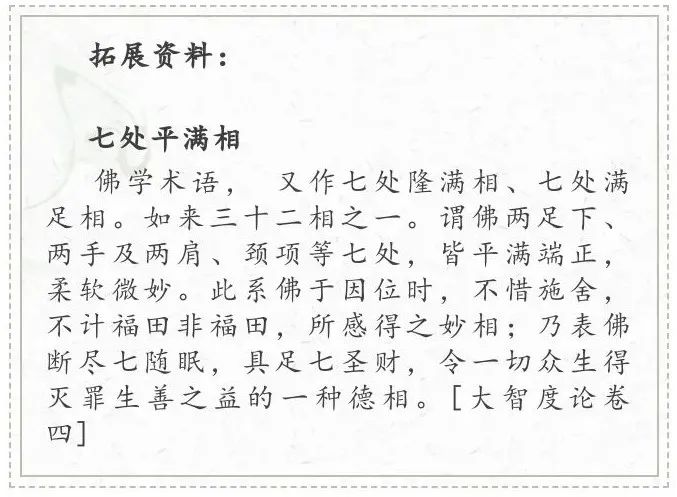 拓展资料：
七处平满相
佛学术语， 又作七处隆满相、七处满
足相。如来三十二相之一。谓佛两足下、
两手及两肩、颈项等七处，皆平满端正，
柔软微妙。此系佛于因位时，不惜施舍，
不计福田非福田，所感得之妙相；乃表佛
断尽七随眠，具足七圣财，令一切众生得
灭罪生善之益的一种德相。[大智度论卷
四]